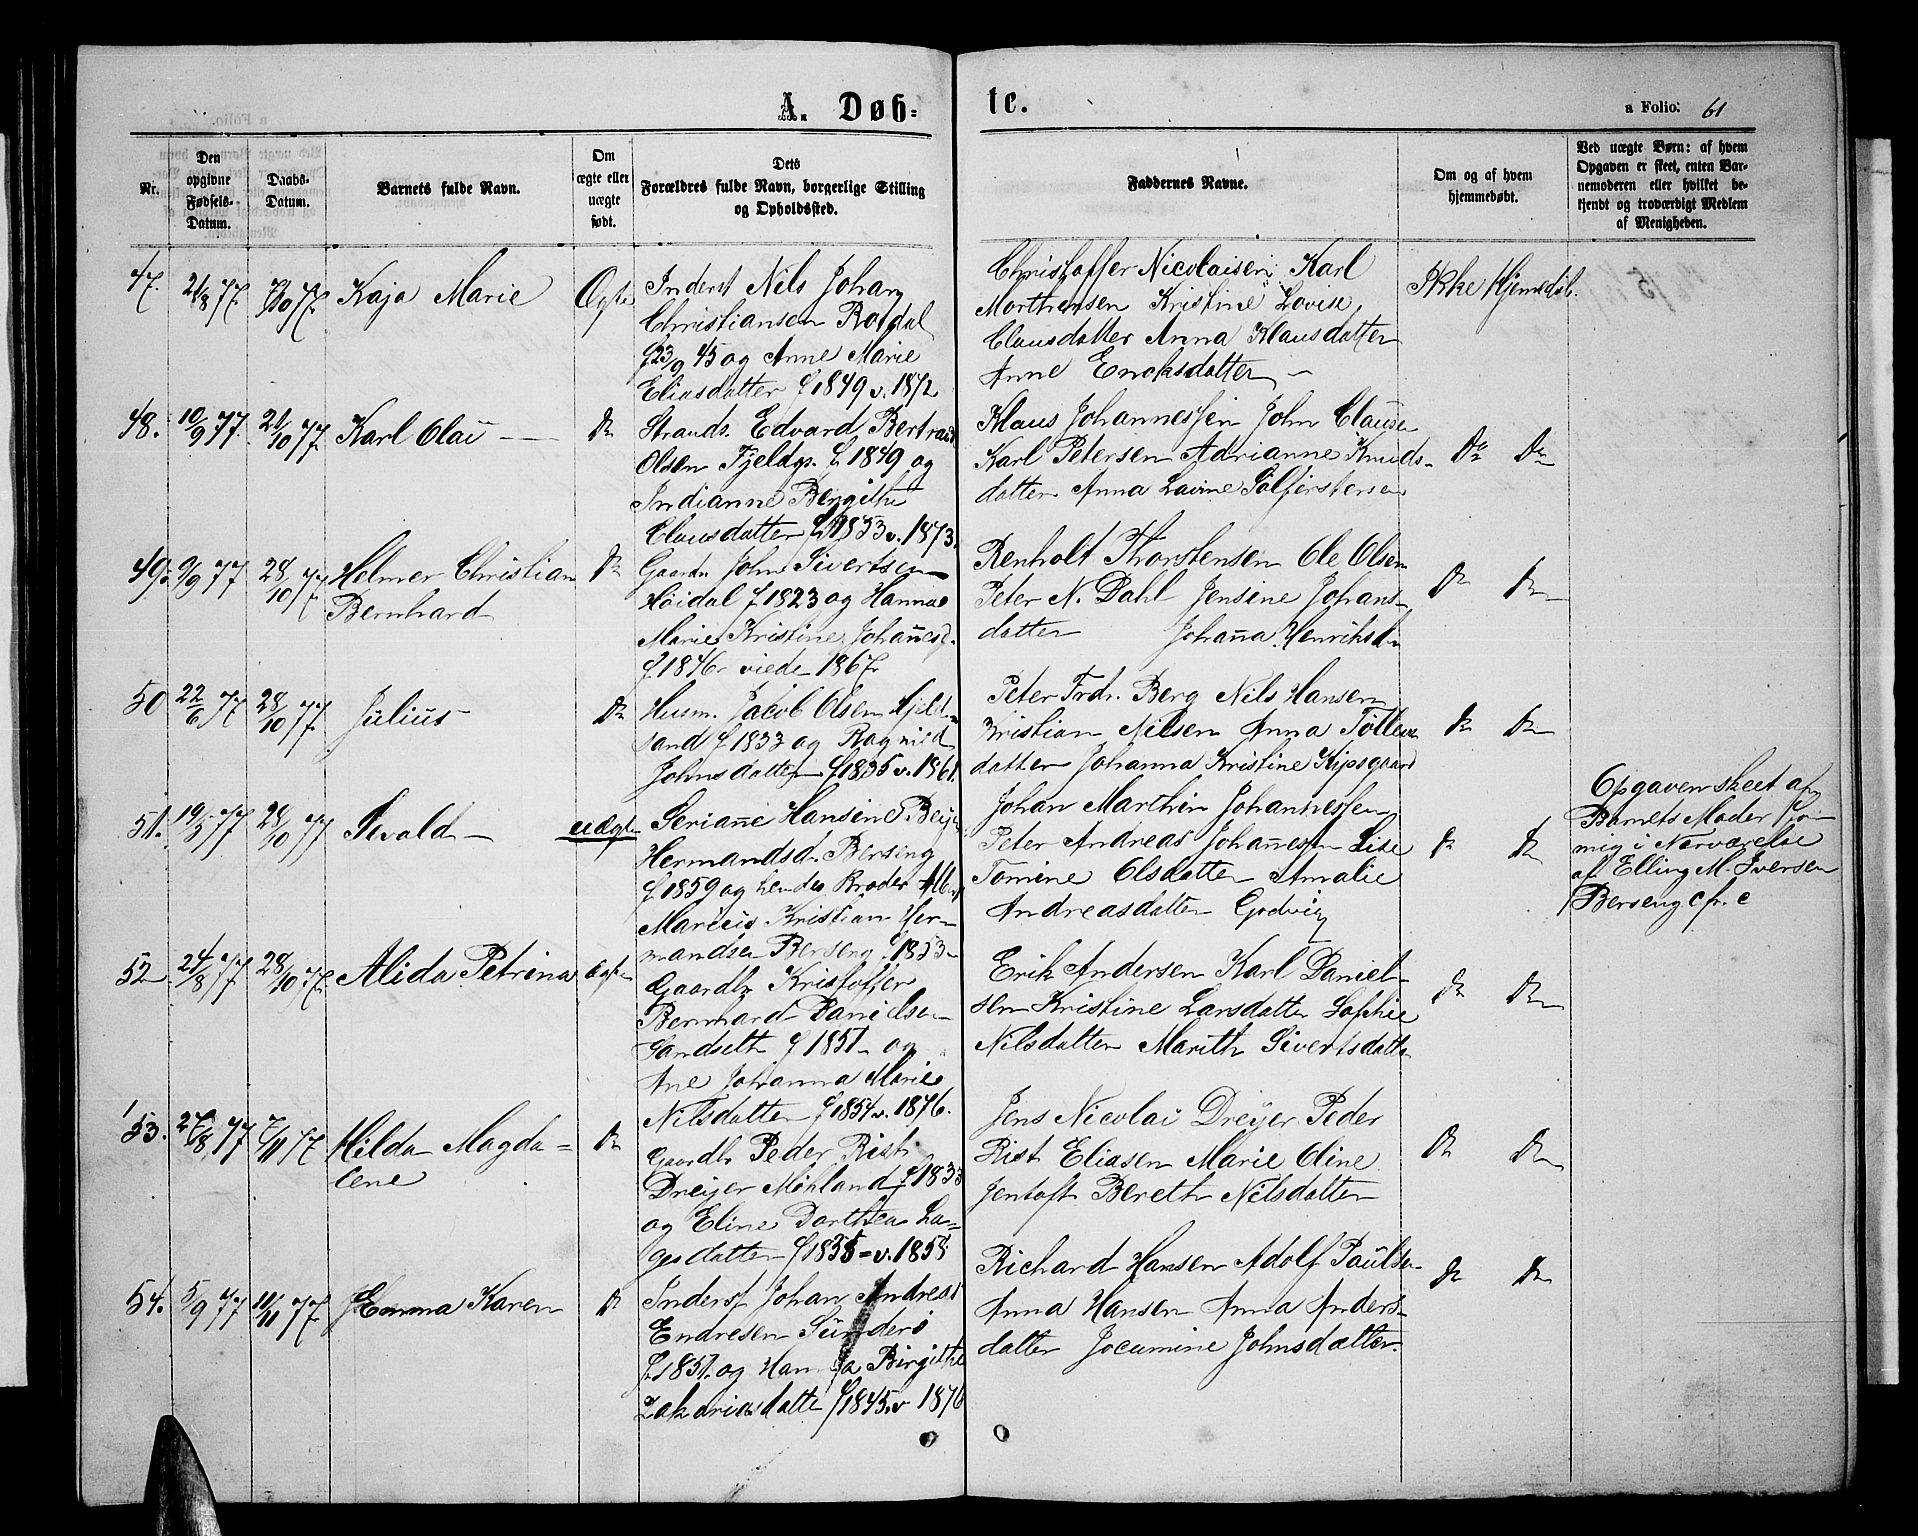 A. Døb=
te.
a Folio: 61
Nr.
Den opgivne Fødsels-Datum.
Daabs-Datum.
Barnets fulde Navn.
Om ægte eller uægte født.
Dets Forældres fulde Navn, borgerlige Stilling og Opholdssted.
Faddernes Navne.
Om og af hvem hjemmedøbt.
Ved uægte Børn: af hvem Opgaven er skeet, enten Barnemoderen eller hvilket bekjendt og troværdigt Medlem af Menigheden.
47. 21/8 77. 7/10 77. Kaja Marie Ægte
Inderst Nils Johan
Christiansen Rotdal
f 23/9 45 og Anne Marie
Eliasdatter f 1849 v. 1872
Christoffer Nicolaisen Karl
Morthensen Kristine Lovise
Clausdatter Anna Klausdatter
Anne Enoksdatter
Ikke Hjemedøb.
48. 10/9 77. 21/10 77. Karl Olai Do
Strands. Edvard Bertrand
Olsen Fjeldgs. f. 1849 og
Indianne Bergithe
Clausdatter f. 1853 v. 1873.
Klaus Johannessen John Clausen
Karl Petersen Adrianne Knuds-
datter Anna Lavine
Do Do
49. 9/9 77 28/10 77. Helmer Christian
Bernhard
Do
Gaardm John Sivertsen
Høidal f 1823 og Hanna
Marie Kristine Johañesd.
f 1846 viede 1867
Renholt Thorstensen Ole Olsen
Peter N. Dahl Jensine Johans-
datter Johaña Henriksd
Do Do
50 22/6 77 28/10 77. Julius Do
Husm. Jacob Olsen Fjeld-
sand f 1833 og Ragnild
Johnsdatter f 1835 v. 1861.
Peter Frdr. Berg Nils Hansen
Kristian Nilsen Anna Tollevs
datter Johanna Kristine Kipsgaard
Do Do
51. 19/3 77 28/10 77 Sevald uægte
Seriañe Hansine
Hermandsd. Berseng
f 1859 og hendes Broder
Marius Kristian Her-
mandsen Berseng f. 1853
Johan Marthin Johannessen
Peter Andreas Johañessen Lise
Tomine Olsdatter Amalie
Andreasdatter Godvig
Do Do
Opgaven skeet af
Barnets Moder for
mig i Nærværelse
af Elling M. Iversen
Berseng cfr. c
52 24/8 77 28/10 77. Alida Petrina ægte
Gaardbr Kristoffer
Bernhard Danielsen
Sandseth f 1851 og
Ane Johanna Marie
Nilsdatter f 1854 v. 1876.
Erik Andersen Karl Daniel-
sen Kristine Larsdatter Sophie
Nilsdatter Marith Sivertsdatter
Do Do
53. 27/8 77 7/11 77. Hilda Magda=
lene
Do
Gaardbr Peder Rist
Dreijer Møhland f 1833
og Eline Dorthea La=
gesdatter f 1835 = v. 1858
Jens Nicolai Dreÿer Peder
Rist Eliasen Marie Oline
Jentoft Bereth Nilsdatter
Do Do
54. 5/9 77 11/11 77. Emma Karen Do
Inderst Johan Andreas
Endresen Sunderø
f. 1851. og Hanna Birgithe
Zakariasdatte f 1845. v 1876
Richard Hansen Adolf Paulsen
Anna Hansen Anna Anders-
datter Jocumine Johnsdatter.
Do Do